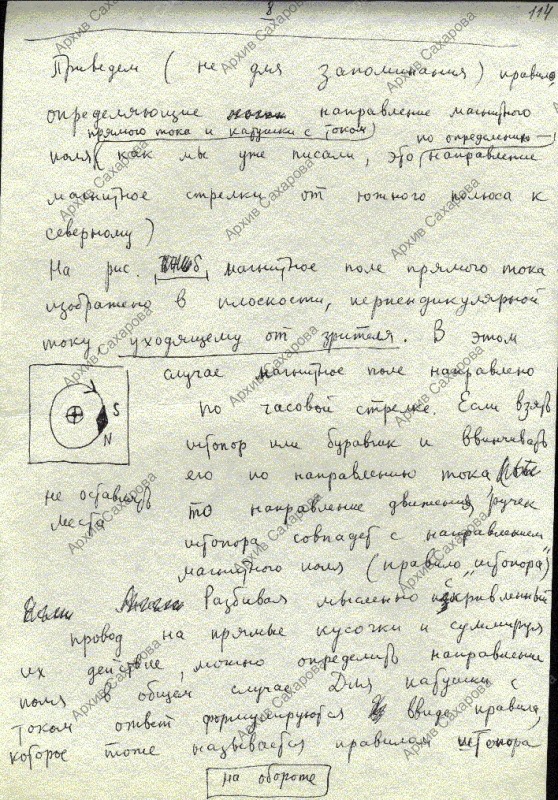 8
114
Приведем (не для запоминания) правила
определяющие направление магнитного
прямого тока и катушки с током
по определению —
поля (как мы уже писали, это направление
магнитное стрелки от южного полюса к
северному)
На рис. магнитное поле прямого тока
изображено в плоскости, перпендикулярной
току, уходящему от зрителя. В этом
случае магнитное поле направлено
по часовой стрелке. Если взять
S
N
штопор или буравчик и ввинчивать
его по направлению тока,
не оставлять
места
то направление движения ручек
штопора совпадет с направлением
магнитного поля (правило "штопора")
Разбивая мысленно искривленный
провод на прямые кусочки и суммируя
их действие, можно определить направление
поля в общем случае. Для катушки с
током ответ формулируются ввиде правила,
которое тоже называется правилом штопора
на обороте
Архив Сахарова